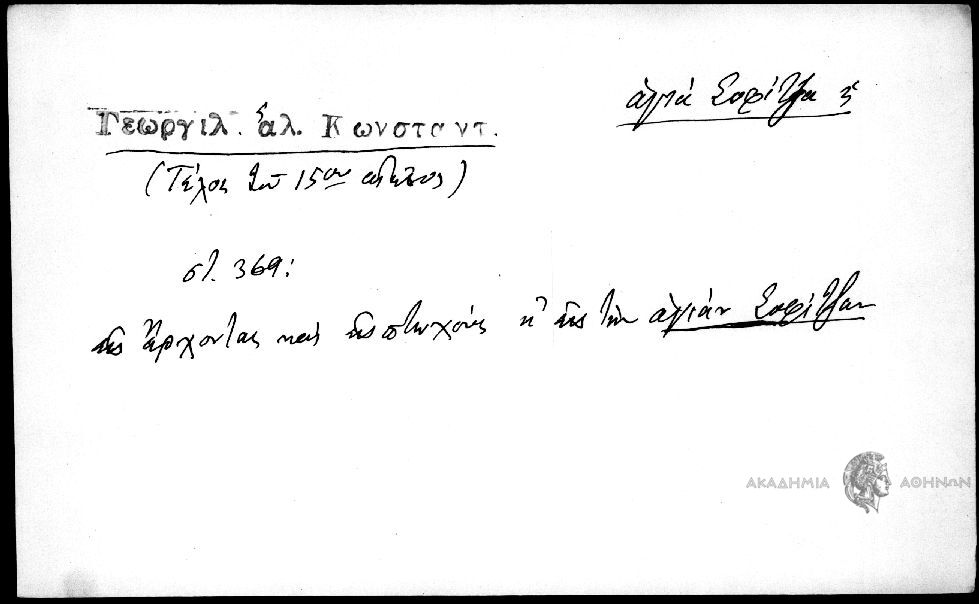 ἁγιά Σοφίτζα ἡ
Γεωργιλ. ἁλ. Κωνσταντ.
(Τέλος τοῦ 15ου αἰῶνος)
στ. 369:
τῆς ἄρχοντας καὶ τῆς πτωχούς κ' εἰς τὴν ἁγιάν Σοφίτζαν
ΑΚΑΔΗΜΙΑ ΑΘΗΝΩΝ